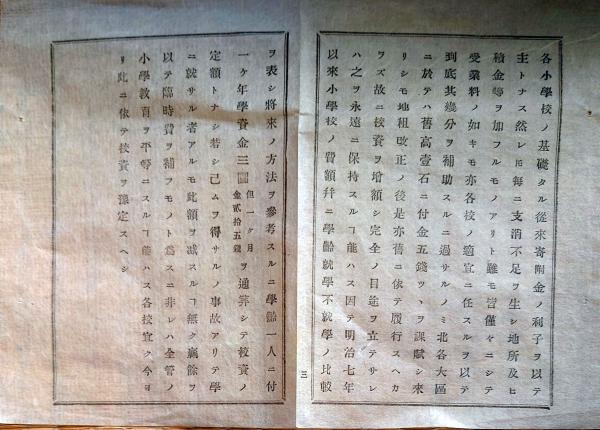 各小學校ノ基礎タル從來寄附金ノ利子ヲ以テ
主トナス然レ𪜈每ニ支消不足ヲ生シ地所及ヒ
積金等ヲ加フルモノアリト雖モ皆僅々ニシテ
受業料ノ如キモ亦各校ノ適宜ニ任スルヲ以テ
到底其幾分ヲ補助スルニ過サルノミ北各大區
ニ於テハ舊高壹石ニ付金五錢ツヽヲ課賦シ來
リシモ地租改正ノ後是亦舊ニ依テ履行スヘカ
ラズ故ニ校資ヲ增額シ完全ノ目途ヲ立テサレ
ハ之ヲ永遠ニ保持スルヿ能ハス因テ明治七年
以來小學校ノ費額幷ニ學齡就學不就學ノ比較
三
ヲ表シ將來ノ方法ヲ參考スルニ學齡一人ニ付
一ケ年學資金三圓但一ケ月金貳拾五錢ヲ通算シテ校資ノ
定額トナシ若シ已ムヲ得サルノ事故アリテ學
ニ就サル者アルモ此額ヲ减スルヿ無ク贏餘ヲ
以テ臨時費ヲ補フモノト爲スニ非レハ全管ノ
小學敎育ヲ平等ニスルヿ能ハス各校宜ク今ヨ
リ此ニ依テ校資ヲ豫定スヘシ